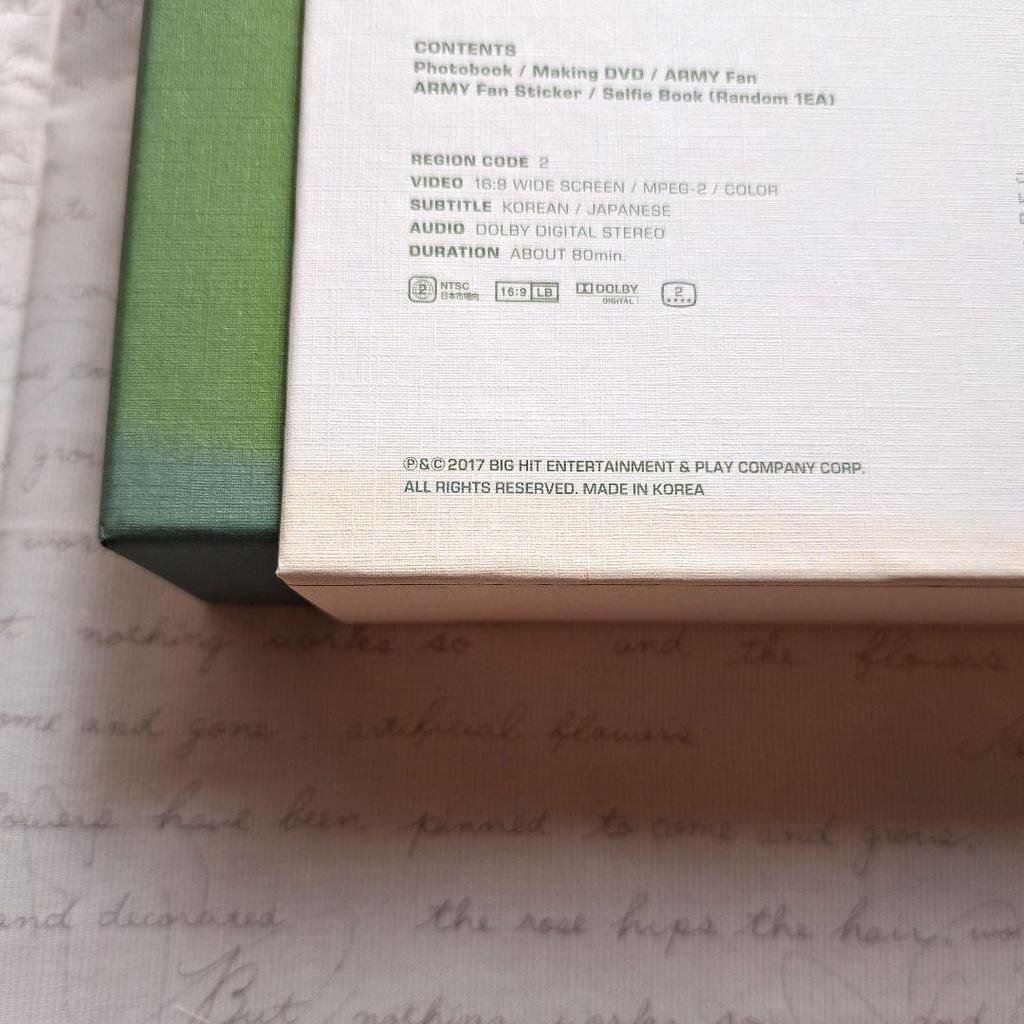 CONTENTS
Photobook / Making DVD / ARMY Fan
ARMY Fan Sticker / Selfie Book (Random 1EA)
REGION CODE 2
VIDEO 16:9 WIDE SCREEN / MPEG-2 / COLOR
SUBTITLE KOREAN / JAPANESE
AUDIO DOLBY DIGITAL STEREO
DURATION ABOUT 80min.
2 NTSC 日本市場向 16:9 LB DOLBY DIGITAL 2
Ⓟ&Ⓒ 2017 BIG HIT ENTERTAINMENT & PLAY COMPANY CORP.
ALL RIGHTS RESERVED. MADE IN KOREA
nothing works so and the flowers
come and gone, artificial flowers
flowers have been pinned to come and grove,
and decorated the rose hips the hair,
But nothing works so and